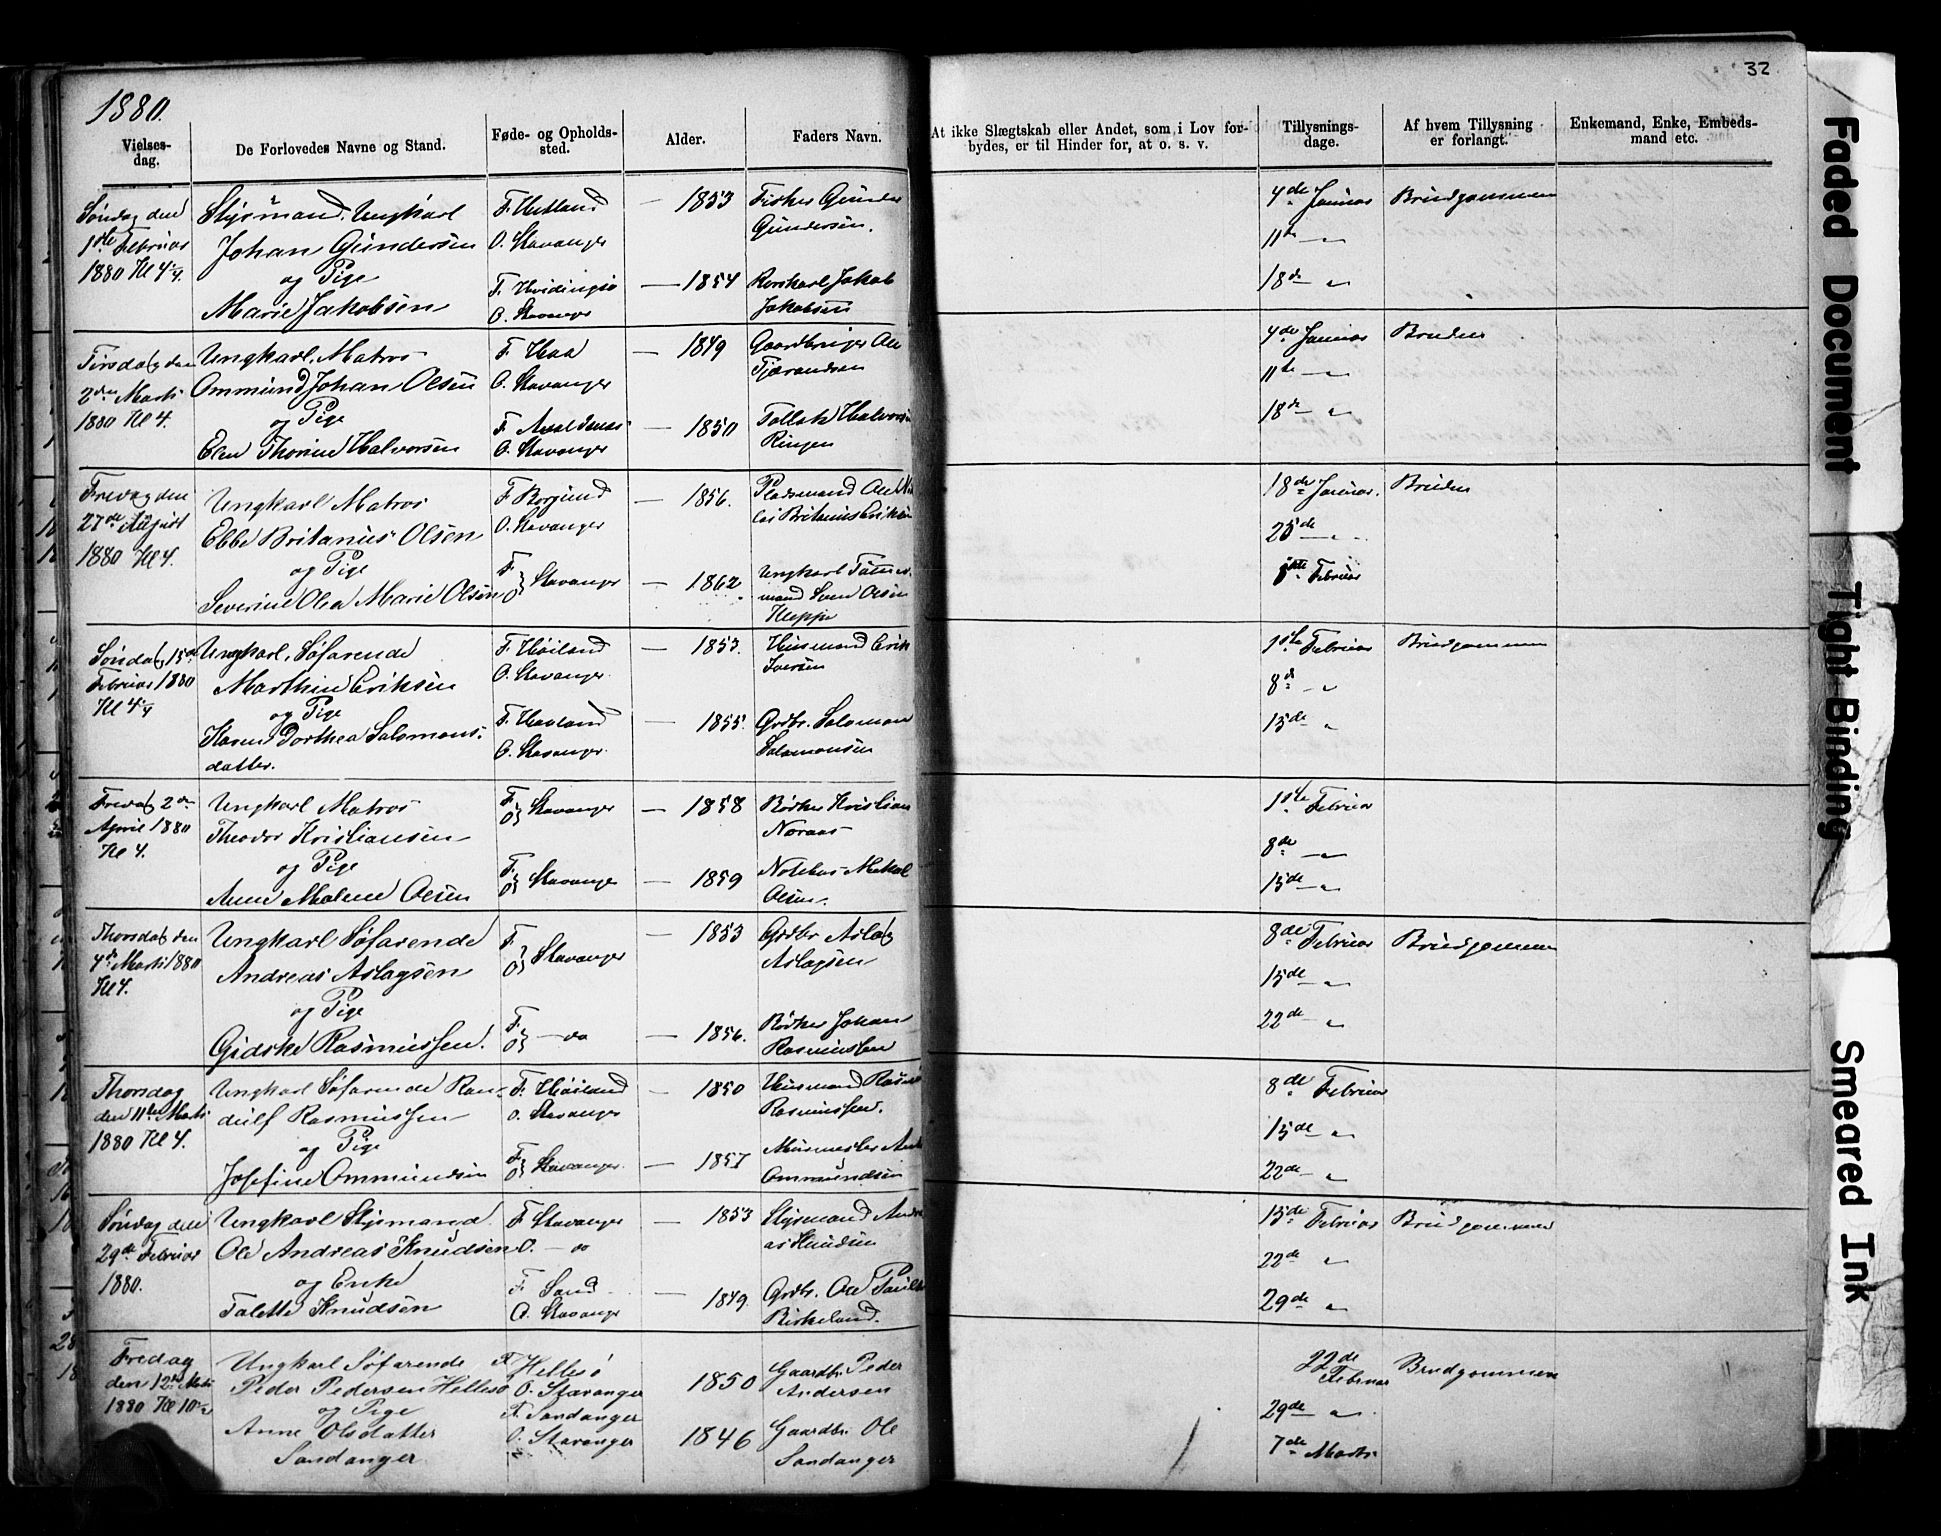 32
1880.
Vielses-
dag.
De Forlovedes Navne og Stand.
Føde- og Opholds-
sted.
Alder.
Faders Navn.
At ikke Slægtskab eller Andet, som i Lov for-
bydes, er til Hinder for, at o. s. v.
Tillysnings-
dage.
Af hvem Tillysning
er forlangt.
Enkemand, Enke, Embeds-
mand etc.
Søndag den
1ste Februar
1880 Kl 4¼
Styrmand, Ungkarl
Johan Gundersen
og Pige
Marie Jakobsen
F. Hetland
O. Stavanger
F. Hvidingsø
O. Stavanger
— 1853
— 1854
Fisker Gunder
Gundersen.
Rorskarl Jakob
Jakobsen
4de Januar
11te — "
18de — "
Brudgommen
Tirsdag den
2den Marts
1880 Kl 4.
Ungkarl, Matros
Ommund Johan Olsen
og Pige
Elen Thorine Halvorsen
F. Haa
O. Stavanger
F. Avaldsnes
O. Stavanger
— 1849
— 1850
Gaardbruger Ole
Tjerandsen
Tollak Halvorsen
Ringen
4de Januar
11te — "
18de — "
Bruden
Fredag den
27de August
1880 Kl 4.
Ungkarl Matros
Ebbe Britanius Olsen
og Pige
Severine Olea Marie Olsen
F. Borgund
O. Stavanger
F. } Stavanger
O
— 1856.
— 1862.
Pladsmand Ole
Ungkarl Tømmer-
mand Sven Olsen
Heppe
18de Januar.
25de — "
1ste Februar
Bruden
Søndag 15de
Februar 1880
Kl 4¼
Ungkarl, Søfarende
Marthin Eriksen
og Pige
Karen Dorthea Salomons-
datter.
F. Høiland
O. Stavanger.
F. Høiland
O. Stavanger.
— 1853.
— 1855.
Husmand Erik
Iversen
Grdbr. Salomon
Salomonsen
1ste Februar
8de — "
15de "
Brudgommen
Fredag 2den
April 1880
Kl 4.
Ungkarl Matros
Theodor Kristiansen
og Pige
Anne Malene Olsen
F. } Stavanger
O
F. } Stavanger
O
— 1858
— 1859
Bødker Kristian
Noraas
Mikal
Olsen.
1ste Februar
8de — "
15de — "
Thorsdag den
4de Marts 1880
Kl 4.
Ungkarl Søfarende
Andreas Aslagsen
og Pige
Gidske Rasmussen.
F. } Stavanger
O
F. } — do
O
— 1853
— 1856.
Grdbr Aslag
Aslagsen
Bødker Johan
Rasmussen
8de Februar
15de — "
22de — "
Brudgommen
Thorsdag
den 11te Marts
1880 Kl 4.
Ungkarl Søfarende Ran-
dulf Rasmussen
og Pige
Josefine Ommundsen
F. Høiland
O. Stavanger
F. } Stavanger.
O
— 1850
— 1857
Husmand Rasmus
Rasmussen.
Murmester
Ommundsen
8de Februar
15de — "
22de — "
Søndag den
29de Februar
1880.
Ungkarl Styrmand
Ole Andreas Knudsen
og Enke
Talette Knudsen
F. Stavanger
O. — do
F. Sand
O. Stavanger
— 1853
— 1849.
Styrmand Andre
as Knudsen
Grdbr. Ole
Birkeland.
15de Februar
22de "
29de "
Brudgommen
Fredag
den 12te Marts
1880 Kl 10½
Ungkarl Søfarende
Peder Pedersen Hellesø
og Pige
Anne Olsdatter
Sandanger
F. Hellesø
O. Stavanger
F. Sandanger
O. Stavanger
1850
1846
Gaardbr. Peder
Andersen
Gaardbr. Ole
Sandanger
22de
Februar
29de — "
7de Marts
Brudgommen
Faded Document
Tight Binding
Smeared Ink